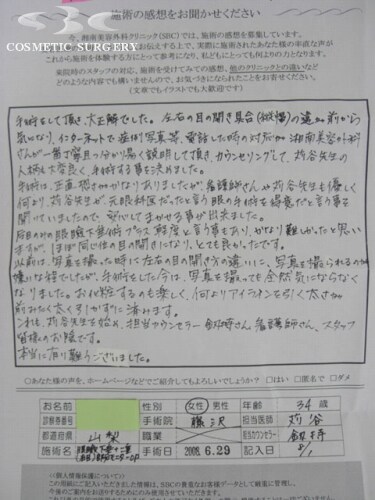 COSMETIC SURGERY
施術の感想をお聞かせください
今、湘南美容外科クリニック(SBC)では、施術の感想を募集しています。
お伝えする上で、実際に施術されたあなた様の率直な声が
これから施術を体験する方にとって参考になり、私どもにとっても何よりの力となります。
来院時のスタッフの対応、施術を受けてみての感想、他のクリニックとの違いなど
どのような内容でも構いませんので、お気づきになられたことをお寄せください。
(文章でもイラストでも大歓迎です)
手術をして頂き、大正解でした。左右の目の開き具合(縦幅)の違いが前から
気になり、インターネットで症例写真等、電話した時の対応が湘南美容外科
さんが一番丁寧且つ分かり易く説明して頂き、カウンセリングして、苅谷先生の
人柄も大変良く手術する事を決めました。
手術は、正直恐さがかなりありましたが、看護師さんが苅谷先生も優しく
何より、苅谷先生が元眼科医だったと言う眼の手術を得意だと言う事を
聞いていましたので、安心してまかせる事が出来ました。
片目のみの眼瞼下垂術プラス軽度と言う事もあり、かなり難しかったと思い
ますが、ほぼ同じ位の目の開きになり、とても良かったです。
以前は、写真を撮った時に左右の目の開き方の違いに、写真を撮られるのが
嫌いな程でしたが、手術をした今は、写真を撮っても全然気にならなくな
なりました。お化粧するのも楽しく、何よりアイラインを引く太さが
前みたく太く引かずに済みます。
これも、苅谷先生を始め、担当カウンセラー釼持さん、看護師さん、スタッフ
皆様のお陰です。
本当に有り難うございました。
○あなた様の声を、ホームページなどでご紹介してもよろしいでしょうか? □はい □匿名で □ダメ
お名前 性別 女性 男性 年齢 34歳
診察券番号 手術院 藤沢 担当医師 苅谷
都道府県 山梨 職業 担当カウンセラー 釼持
施術名 眼瞼下垂 手術日 2008.6.29
<個人情報保護について>